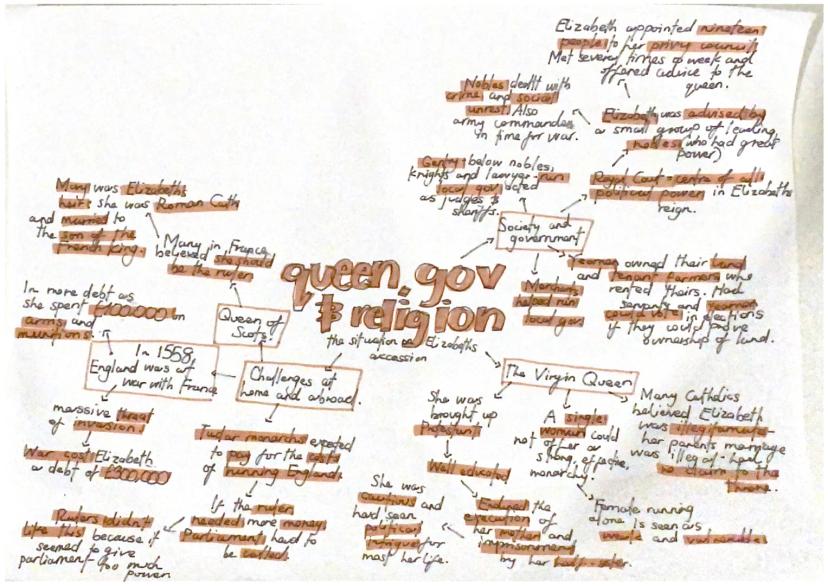 queen, gov
& religion
the situation on Elizabeths
accession
Society and
government
Royal Court = centre of all
political power in Elizabeths
reign.
Elizabeth was advised by
a small group of leading
nobles (who had great
power)
Elizabeth appointed nineteen
people to her privy council.
Met several times a week and
offered advice to the
queen.
Nobles dealt with
crime and social
unrest. Also
army commanders
in time for war.
Gentry - below nobles,
knights and lawyers - run
local gov, acted
as judges &
sheriffs.
Merchants
helped run
local gov
Yeoman owned their land
and tenant farmers who
rented theirs. Had
servants and yeoman
could vote in elections
if they could prove
ownership of land.
The Virgin Queen
She was
brought up
Protestant
Well educated
Endured the
execution of
her mother and
imprisonment
by her half-sister.
She was
cautious and
had seen
political
intrigue for
most her life.
A single
woman could
not offer a
strong, effective,
monarchy.
Female running
alone is seen as
weak and vulnerable.
Many Catholics
believed Elizabeth
was illegitimate -
her parents marriage
was illegal - had
no claim to the
throne.
Challenges at
home and abroad.
Queen of
Scots.
Many in France
believed she should
be the ruler
Mary was Elizabeths
heir. She was Roman Cath
and married to
the son of the
French King.
In 1558,
England was at
war with France
In more debt as
she spent £100,000 on
arms and
munitions.
massive threat
of invasion.
War cost Elizabeth
a debt of £300,000
Tudor monarchs expected
to pay for the costs
of running England.
If the ruler
needed more money,
Parliament had to
be called.
Rulers didn't
like this because it
seemed to give
parliament too much
power